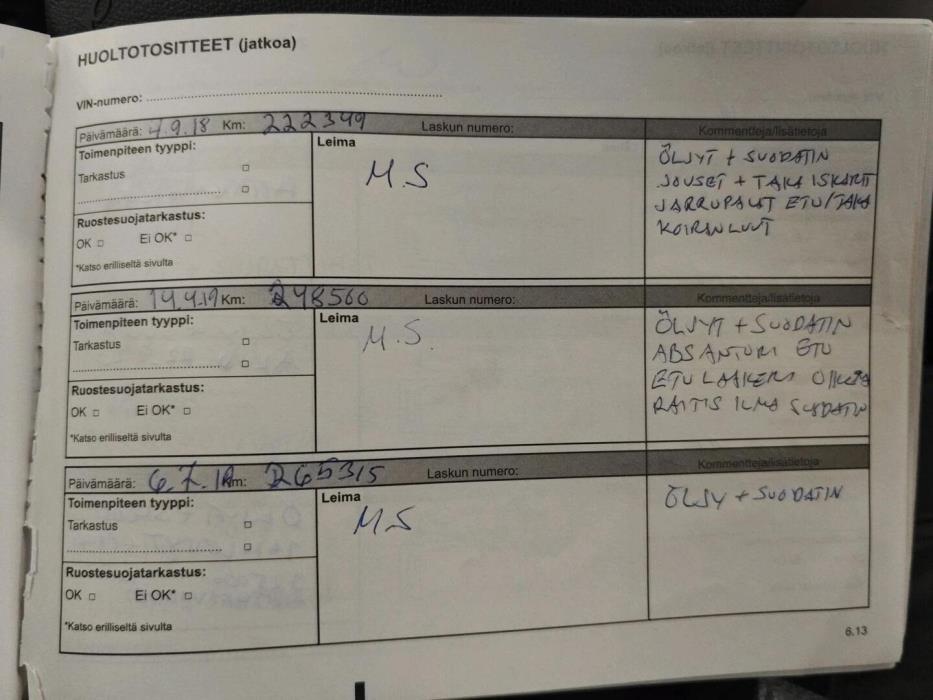 HUOLTOTOSITTEET (jatkoa)
VIN-numero:
Päivämäärä: 4.9.18 Km: 222349 Laskun numero: Kommentteja/lisätietoja
Toimenpiteen tyyppi:
Tarkastus
Ruostesuojatarkastus:
OK Ei OK*
*Katso erilliseltä sivulta
Leima
M.S
ÖLJYT + SUODATIN
JOUSET + TAKA ISKARIT
JARRUPALAT ETU/TAKA
KOIRANLUUT
Päivämäärä: 14.4.19 Km: 248560 Laskun numero: Kommentteja/lisätietoja
Toimenpiteen tyyppi:
Tarkastus
Ruostesuojatarkastus:
OK Ei OK*
*Katso erilliseltä sivulta
Leima
M.S.
ÖLJYT + SUODATIN
ABS ANTURI ETU
ETU LAAKERI OIKEA
RAITIS ILMA SUODATIN
Päivämäärä: 6.7.19 Km: 265315 Laskun numero: Kommentteja/lisätietoja
Toimenpiteen tyyppi:
Tarkastus
Ruostesuojatarkastus:
OK Ei OK*
*Katso erilliseltä sivulta
Leima
M.S
ÖLJY + SUODATIN
6.13